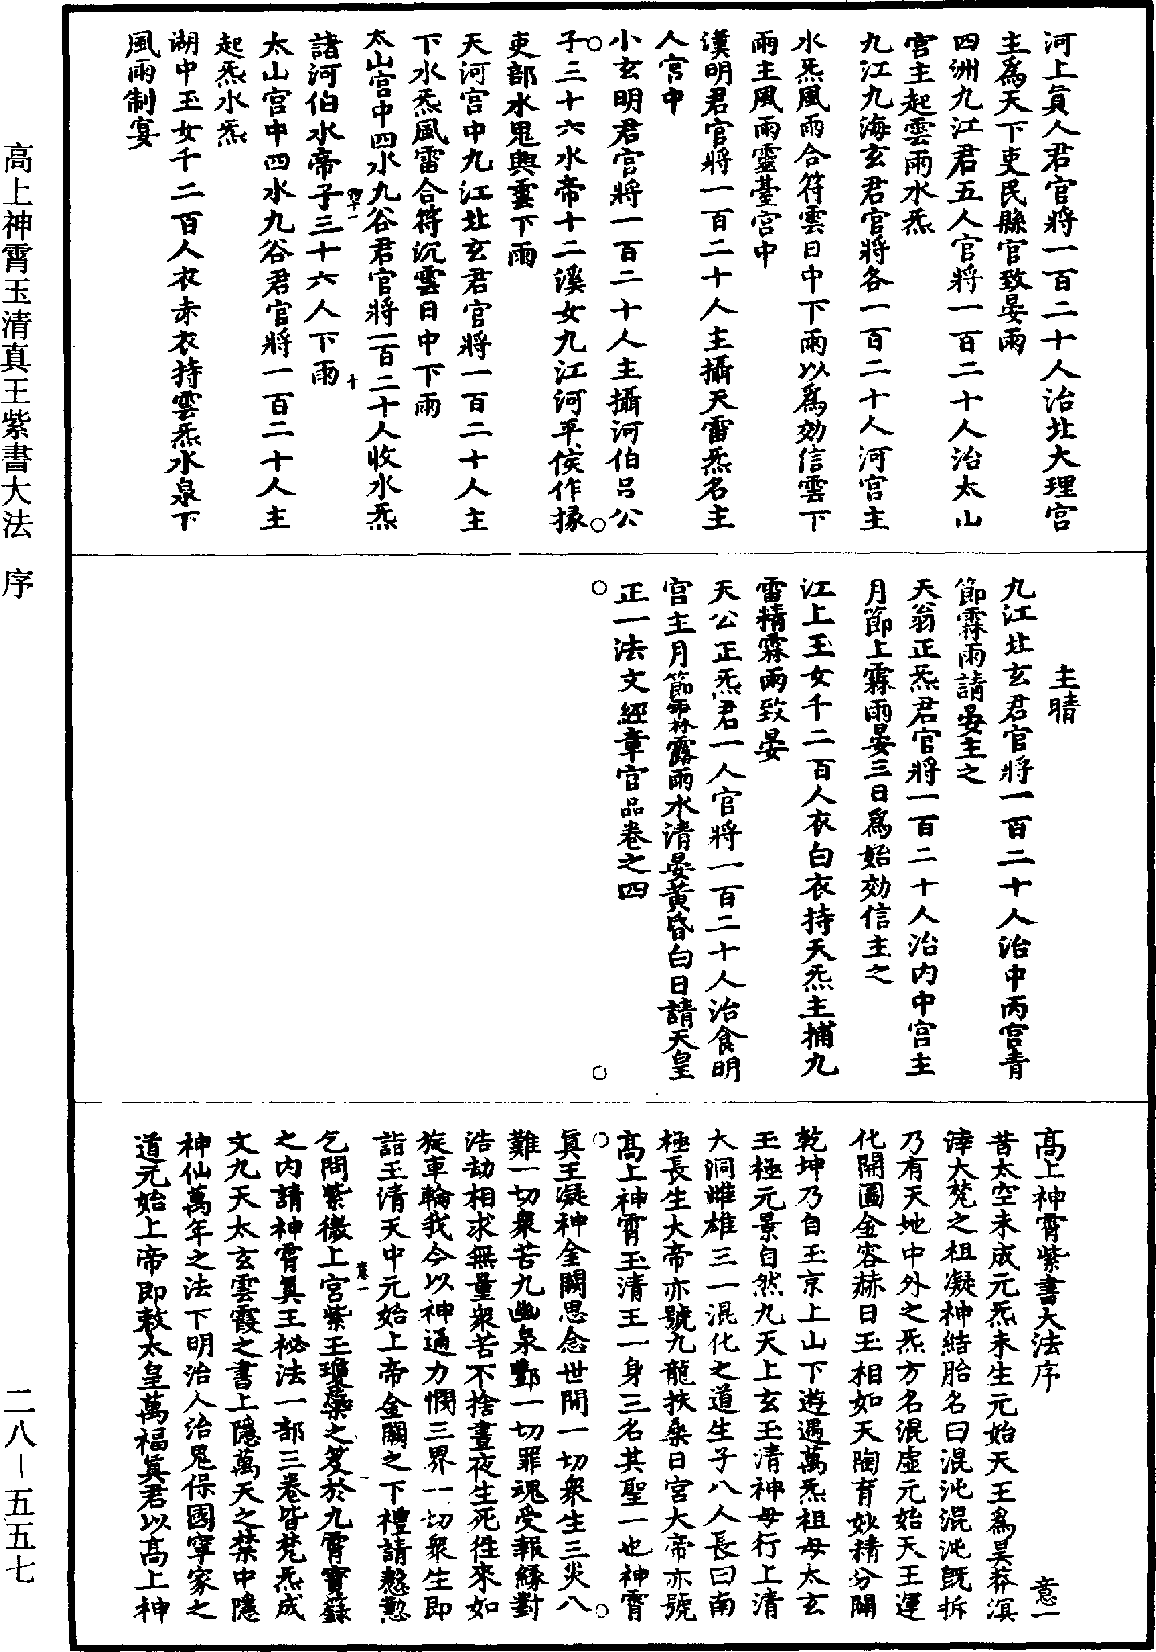 河上眞人君官將一百二十人治北大理宮
主爲天下吏民縣官致晏雨
四洲九江君五人官將一百二十人治太山
宮主起雲雨水炁
九江九海玄君官將各一百二十人河宮主
水炁風雨合符雲日中下雨以爲効信雲下
雨主風雨靈臺宮中
漢明君官將一百二十人主攝天雷炁名主
人宮中
小玄明君官將一百二十人主攝河伯呂公
子三十六水帝十二溪女九江河平侯作掾
吏部水鬼興雲下雨
天河宮中九江北玄君官將一百二十人主
下水炁風雷合符沉雲日中下雨
太山宮中四水九谷君官將一百二十人收水炁
諸河伯水帝子三十六人下雨
太山宮中四水九谷君官將一百二十人主
起炁水炁
湖中玉女千二百人衣赤衣持雲炁水泉下
風雨制宴
主晴
九江北玄君官將一百二十人治中丙宮青
節霖雨請晏主之
天翁正炁君官將一百二十人治内中宮主
月節上霖雨晏三日爲始効信主之
江上王女千二百人衣白衣持天炁主捕九
雷精霖雨致晏
天公正炁君一人官將一百二十人治食明
宮主月節霖露雨水清晏黃昏白日請天皇
正一法文經章官品卷之四
高上神霄紫書大法序 意一
昔太空未成元炁未生元始天王爲昊莽溟
涬大梵之祖凝神結胎名曰混沌混沌旣拆
乃有天地中外之炁方名混虛元始天王運
化開圖金容赫日玉相如天陶育妙精分闢
乾坤乃自玉京上山下遊遇萬炁祖母太玄
玉極元景自然九天上玄玉清神母行上清
大洞雌雄三一混化之道生子八人長曰南
極長生大帝亦號九龍扶桑日宮大帝亦號
高上神霄玉清王一身三名其聖一也神霄
眞王凝神金闕思念世間一切衆生三災八
難一切衆苦九幽泉酆一切罪魂受報緣對
浩劫相求無量衆苦不捨晝夜生死往來如
旋車輪我今以神通力憫三界一切衆生即
詣玉清天中元始上帝金闕之下禮請慇懃
乞問紫微上宮紫玉瓊蘂之笈於九霄寶籙
之内請神霄眞王祕法一部三卷皆梵炁成
文九天太玄雲霞之書上隱萬天之禁中隱
神仙萬年之法下明治人治鬼保國寧家之
道元始上帝即敕太皇萬福眞君以高上神
高上神霄玉清真王紫書大法 序
二八—五五七